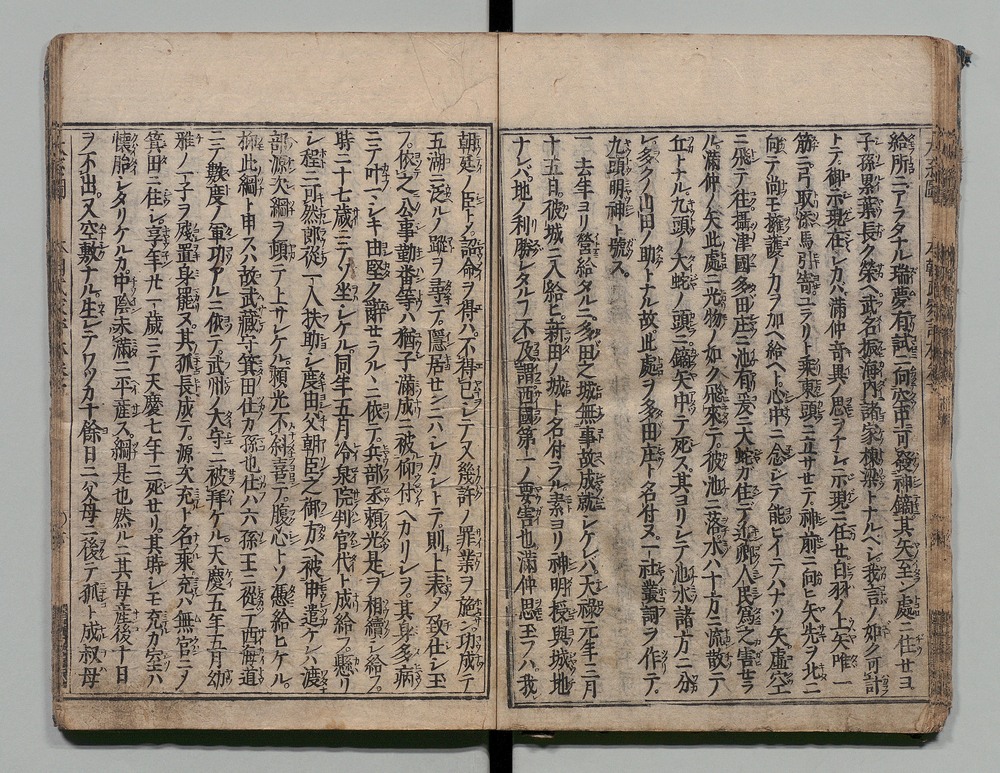 給所ニアラタナル瑞夢有試ニ向空中可發神鏑其矢至ン處ニ住セヨ
子孫累葉長ク榮ヘ武名振海内諸家棟梁トナルベシ我言ノ如ク可計
トテ御示現在シカバ滿仲奇異ノ思ヲナシ示現ニ任セ白羽ノ上矢唯一
筋ニ弓取添馬引寄ユラリト乘東頭ニ立サセテ神前ニ向ヒ矢先ヲ北ニ
向テ尚モ擁護ノ力ヲ加ヘ給ヘト心中ニ念シテ能ヒイテハナツ矢虚空
ニ飛テ住攝津國多田庄ニ池有爰ニ大蛇カ住テ近郷人民爲之害セラ
ル滿仲ノ矢此處ニ光物ノ如ク飛來テ彼池ニ落水ハ十方ニ流散テ
丘トナル九頭ノ大蛇ノ頭ニ鏑矢中テ死ス其ヨリシテ池水諸方ニ分
レ多クノ山田ノ助トナル故此處ヲ多田庄ト名付ヌ一社叢祠ヲ作テ
九頭明神ト號ス
去年ヨリ營給タルニ多田之城無事故成就シケレハ天祿元年三月
十五日彼城ニ入給ヒ新田ノ城ト名付ラル素ヨリ神明授與城地
ナレバ地ノ利勝レタルフ不及謂西國第一ノ要害也滿仲思玉フハ我
朝廷ノ臣トノ詔命ヲ得ハ不得已シテ又幾許ノ罪業ヲ施ン功成テ
五湖ニ泛ルノ蹤ヲ尋テ隱居センニハシカシトテ則上表ノ致仕シ玉
フ依之公事勤番等ハ猶子滿成ニ被仰付ヘカリシヲ其身多病
ニテ叶マシキ由堅ク辭セラルニ依テ兵部丞頼光是ヲ相續シ給フ
時ニ十七歳ニテソ坐シケル同年五月冷泉院判官代ト成給フ懸リ
シ程ニ可然郎從一人扶助シ度由父朝臣之御方ヘ被申遣ケレハ渡
部源次綱ヲ頭ニテ上サレケル頼光不斜喜テ腹心トソ憑給ヒケル
抑此綱ト申スハ故武藏守箕田仕カ孫也仕ハ六孫王ニ從テ西海道
ニテ數度ノ軍功アルニ依テ武州ノ大守ニ被拜ケル天慶五年五月幼
雅ノ一子ヲ殘置身罷ヌ其孤長成テ源次充ト名乘充ハ無官ニノ
箕田ニ住シ享年廿一歳ニテ天慶七年ニ死セリ其時シモ充カ室ハ
懷胎シタリケルカ中陰未滿ニ平産ス綱是也然ルニ其母産後十日
ヲ不出又空敷ナル生レテワツカ十餘日ニ父母ニ後テ孤ト成叔母